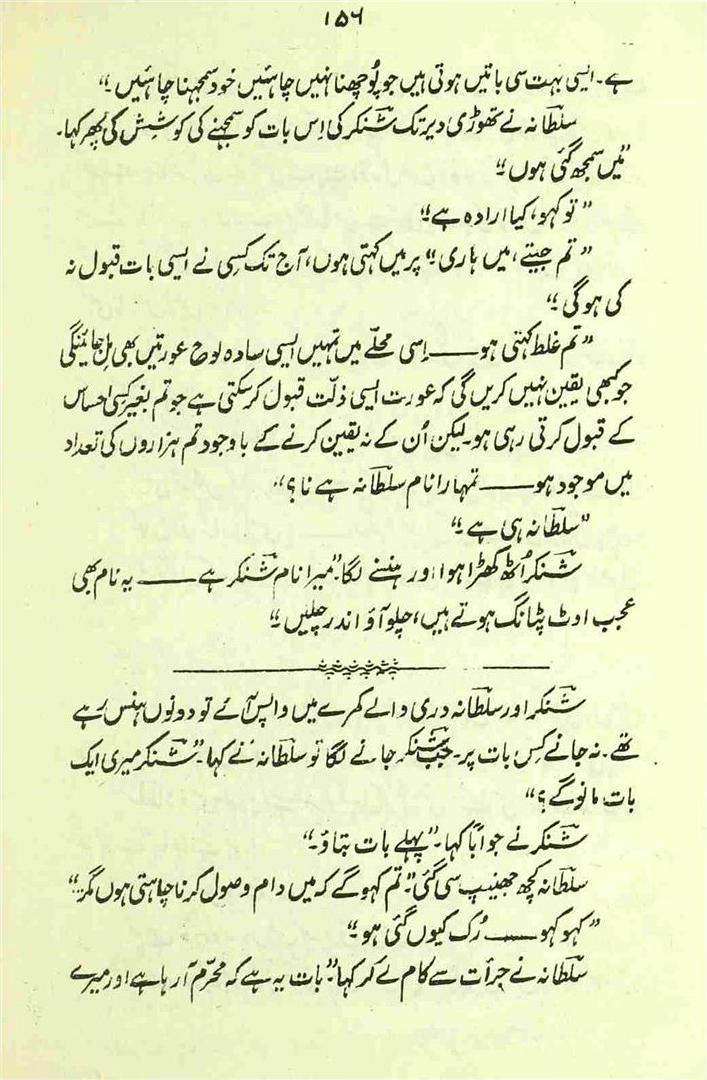 ۱۵۶
ہے۔ ایسی بہت سی باتیں ہوتی ہیں جو پُوچھنا نہیں چاہئیں خود سمجھنا چاہئیں ۔“
سلطانہ نے تھوڑی دیر تک شنکر کی اِس بات کو سمجھنے کی کوشش کی پھر کہا۔
”میں سمجھ گئی ہوں ۔“
”تو کہو، کیا ارادہ ہے ۔“
”تم جیتے، میں ہاری ۔“ پر میں کہتی ہوں، آج تک کسی نے ایسی بات قبول نہ
کی ہو گی ۔“
”تم غلط کہتی ہو —— اِسی محلّے میں تمہیں ایسی سادہ لوح عورتیں بھی مِل جائینگی
جو کبھی یقین نہیں کریں گی کہ عورت ایسی ذلّت قبول کر سکتی ہے جو تم بغیر کسی احساس
کے قبول کرتی رہی ہو۔ لیکن اُن کے نہ یقین کرنے کے باوجود تم ہزاروں کی تعداد
میں موجود ہو —— تمہارا نام سلطانہ ہے نا؟“
”سلطانہ ہی ہے ۔“
شنکر اُٹھ کھڑا ہوا اور ہنسنے لگا۔ ”میرا نام شنکر ہے —— یہ نام بھی
عجب اوٹ پٹانگ ہوتے ہیں، چلو آؤ اندر چلیں ۔“
شنکر اور سلطانہ دری والے کمرے میں واپس آئے تو دونوں ہنس رہے
تھے۔ نہ جانے کِس بات پر۔ جب شنکر جانے لگا تو سلطانہ نے کہا۔ ”شنکر میری ایک
بات مانو گے؟“
شنکر نے جواباً کہا۔ ”پہلے بات بتاؤ ۔“
سلطانہ کچھ جھینپ سی گئی۔ ”تم کہو گے کہ میں دام وصول کرنا چاہتی ہوں مگر“
”کہو کہو —— رُک کیوں گئی ہو ۔“
سلطانہ نے جرأت سے کام لے کر کہا۔ ”بات یہ ہے کہ محرّم آ رہا ہے اور میرے